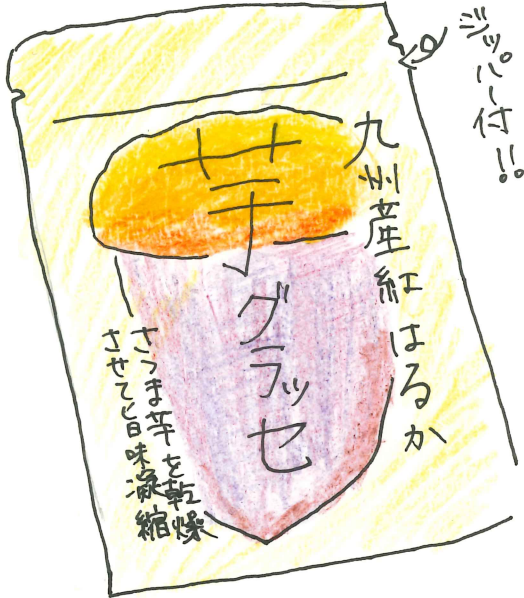 ジッパー付!!
九州産紅はるか
芋グラッセ
さつま芋を乾燥
させて旨味凝縮